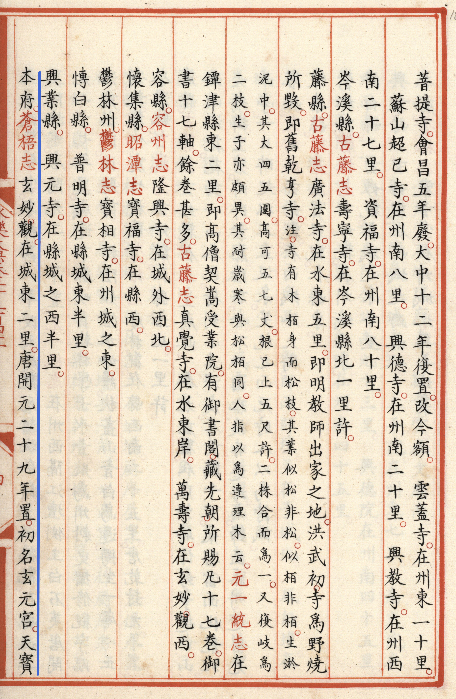 菩提寺會昌五年廢大中十二年復置改今額 雲蓋寺在州東一十里
蘇山超已寺在州南八里 興德寺在州南二十里 興教寺在州西
南二十七里 資福寺在州南八十里
岑溪縣古藤志壽寧寺在岑溪縣北一里許
藤縣古藤志廣法寺在水東五里即明教師出家之地洪武初寺為野燒
所毀即舊乾亨寺注寺有木栢身而松枝其葉似松非松似栢非栢生淤
泥中其大四五圍高可五七丈根已上五尺許二株合而為一又復岐為
二枝生子亦頗異其耐歲寒與松栢同人指以為連理木云元一統志在
鐔津縣東二里即高僧契嵩受業院有御書閣藏先朝所賜凡十七卷御
書十七軸餘卷甚多古藤志真覺寺在水東岸 萬壽寺在玄妙觀西
容縣容州志隆興寺在城外西北
懷集縣昭潭志寶福寺在縣西
鬱林州鬱林志寶相寺在州城之東
博白縣 普明寺在縣城東半里
興業縣 興元寺在縣城之西半里
本府蒼梧志玄妙觀在城東二里唐開元二十九年置初名玄元宮天寶